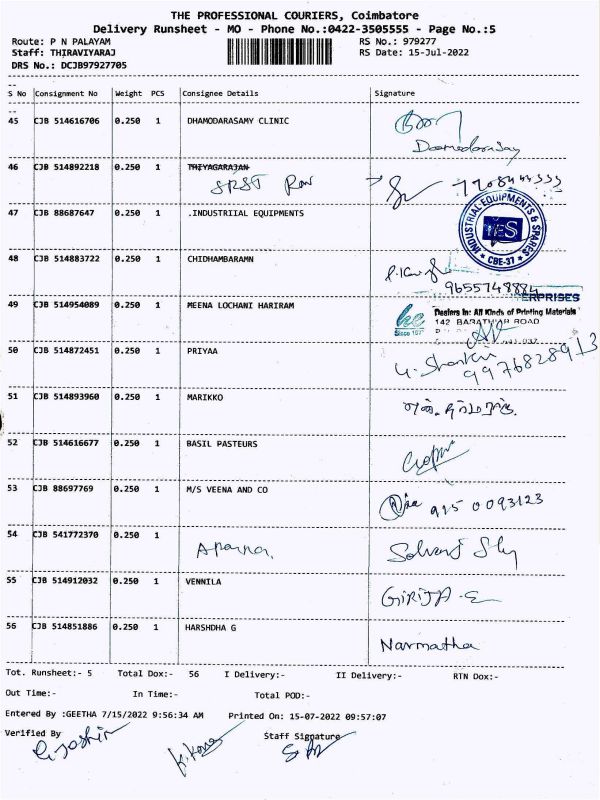 THE PROFESSIONAL COURIERS, Coimbatore
Delivery Runsheet - MO - Phone No.:0422-3505555 - Page No.:5
Route: P N PALAYAM RS No.: 979277
Staff: THIRAVIYARAJ RS Date: 15-Jul-2022
DRS No.: DCJB97927705
S No Consignment No Weight PCS Consignee Details Signature
45 CJB 514616706 0.250 1 DHAMODARASAMY CLINIC
46 CJB 514892218 0.250 1 THIYAGARAJAN
SRST
47 CJB 88687647 0.250 1 .INDUSTRIIAL EQUIPMENTS
INDUSTRIAL EQUIPMENTS & SPARES
IES
* CBE-37 *
48 CJB 514883722 0.250 1 CHIDHAMBARAMN
9655748884
ERPRISES
49 CJB 514954089 0.250 1 MEENA LOCHANI HARIRAM
Dealers in: All Kinds of Printing Materials
142 BARATHIAR ROAD
50 CJB 514872451 0.250 1 PRIYAA
9976828913
51 CJB 514893960 0.250 1 MARIKKO
52 CJB 514616677 0.250 1 BASIL PASTEURS
53 CJB 88697769 0.250 1 M/S VEENA AND CO
915 0093123
54 CJB 541772370 0.250 1 Aparna.
55 CJB 514912032 0.250 1 VENNILA
GIRIJA
56 CJB 514851886 0.250 1 HARSHDHA G
Narmatha
Tot. Runsheet:- 5 Total Dox:- 56 I Delivery:- II Delivery:- RTN Dox:-
Out Time:- In Time:- Total POD:-
Entered By :GEETHA 7/15/2022 9:56:34 AM Printed On: 15-07-2022 09:57:07
Verified By Staff Signature